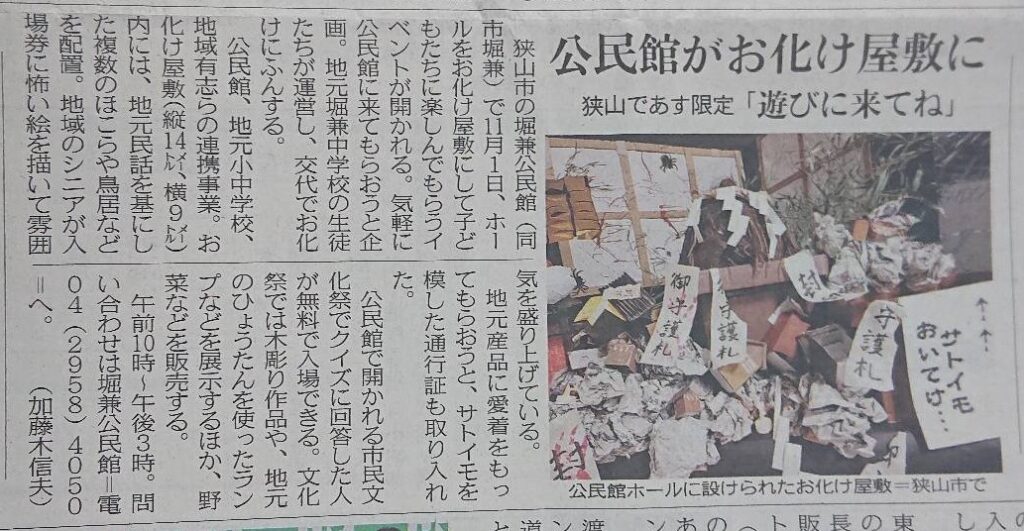 公民館がお化け屋敷に
狭山であす限定「遊びに来てね」
狭山市の堀兼公民館（同
市堀兼）で11月1日、ホー
ルをお化け屋敷にして子ど
もたちに楽しんでもらうイ
ベントが開かれる。気軽に
公民館に来てもらおうと企
画。地元堀兼中学校の生徒
たちが運営し、交代でお化
けにふんする。
公民館、地元小中学校、
地域有志らの連携事業。お
化け屋敷（縦14㍍、横9㍍）
内には、地元民話を基にし
た複数のほこらや鳥居など
を配置。地域のシニアが入
場券に怖い絵を描いて雰囲
気を盛り上げている。
地元産品に愛着をもっ
てもらおうと、サトイモを
模した通行証も取り入れ
た。
公民館で開かれる市民文
化祭でクイズに回答した人
が無料で入場できる。文化
祭では木彫り作品や、地元
のひょうたんを使ったラン
プなどを展示するほか、野
菜などを販売する。
午前10時～午後3時。問
い合わせは堀兼公民館＝電
04（2958）4050
＝へ。（加藤木信夫）
御守護札
守護札
封
守護札
↑↑↑
サトイモ
おいてけ…
封
公民館ホールに設けられたお化け屋敷＝狭山市で